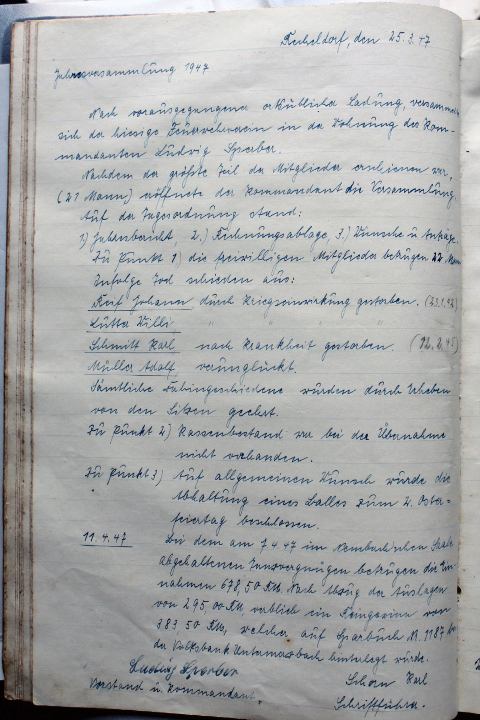 den 25.3.47
Jahresversammlung 1947
Nach vorausgegangener ortsüblicher Ladung, versammelte
sich der hiesige Feuerwehrverein in der Wohnung des Kom-
mandanten Ludwig Sperber.
Nachdem der größte Teil der Mitglieder erschienen war,
(21 Mann) eröffnete der Kommandant die Versammlung.
Auf der Tagesordnung stand:
1.) Jahresbericht, 2.) Rechnungsablage, 3.) Wünsche u. Anträge.
Zu Punkt 1) die freiwilligen Mitglieder betrugen 22 Mann
Infolge Tod schieden aus:
Johann durch Kriegseinwirkung gestorben.
Willi " " "
Schmitt Karl nach Krankheit gestorben. (12.2.45)
Müller Adolf verunglückt.
Sämtliche wurden durch Erheben
von den Sitzen geehrt.
Zu Punkt 2) Kassenbestand war bei der Übernahme
nicht vorhanden.
Zu Punkt 3) Auf allgemeinen Wunsch wurde die
Abhaltung eines Balles zum 2. Oster-
feiertag beschlossen.
11.4.47 Bei dem am 7.4.47 im Saale
abgehaltenen Tanzvergnügen betrugen die Ein-
nahmen 678,50 RM. Nach Abzug der Auslagen
von 295,00 RM. verblieb ein Reingewinn von
383,50 RM, welcher auf Sparbuch N. 1187 bei
der Volksbank hinterlegt wurde.
Ludwig Sperber Schorn Karl
Vorstand u. Kommandant. Schriftführer.